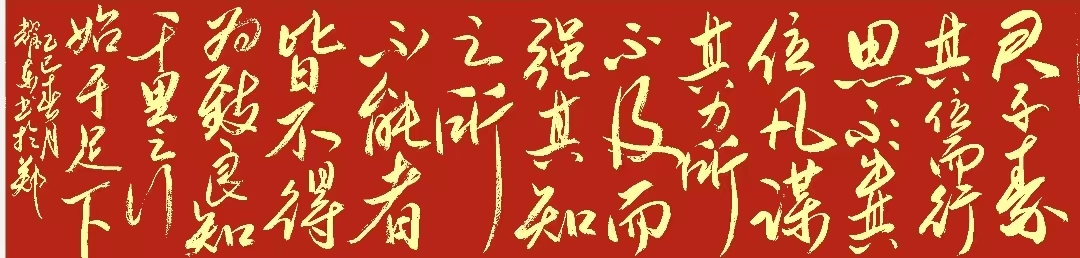 君子素
其位而行
思不出其
位凡谋
其力所
不及而
强其知
之所
不能者
皆不得
为致良知
千里之行
始于足下
乙巳年春月
耀东书於郑